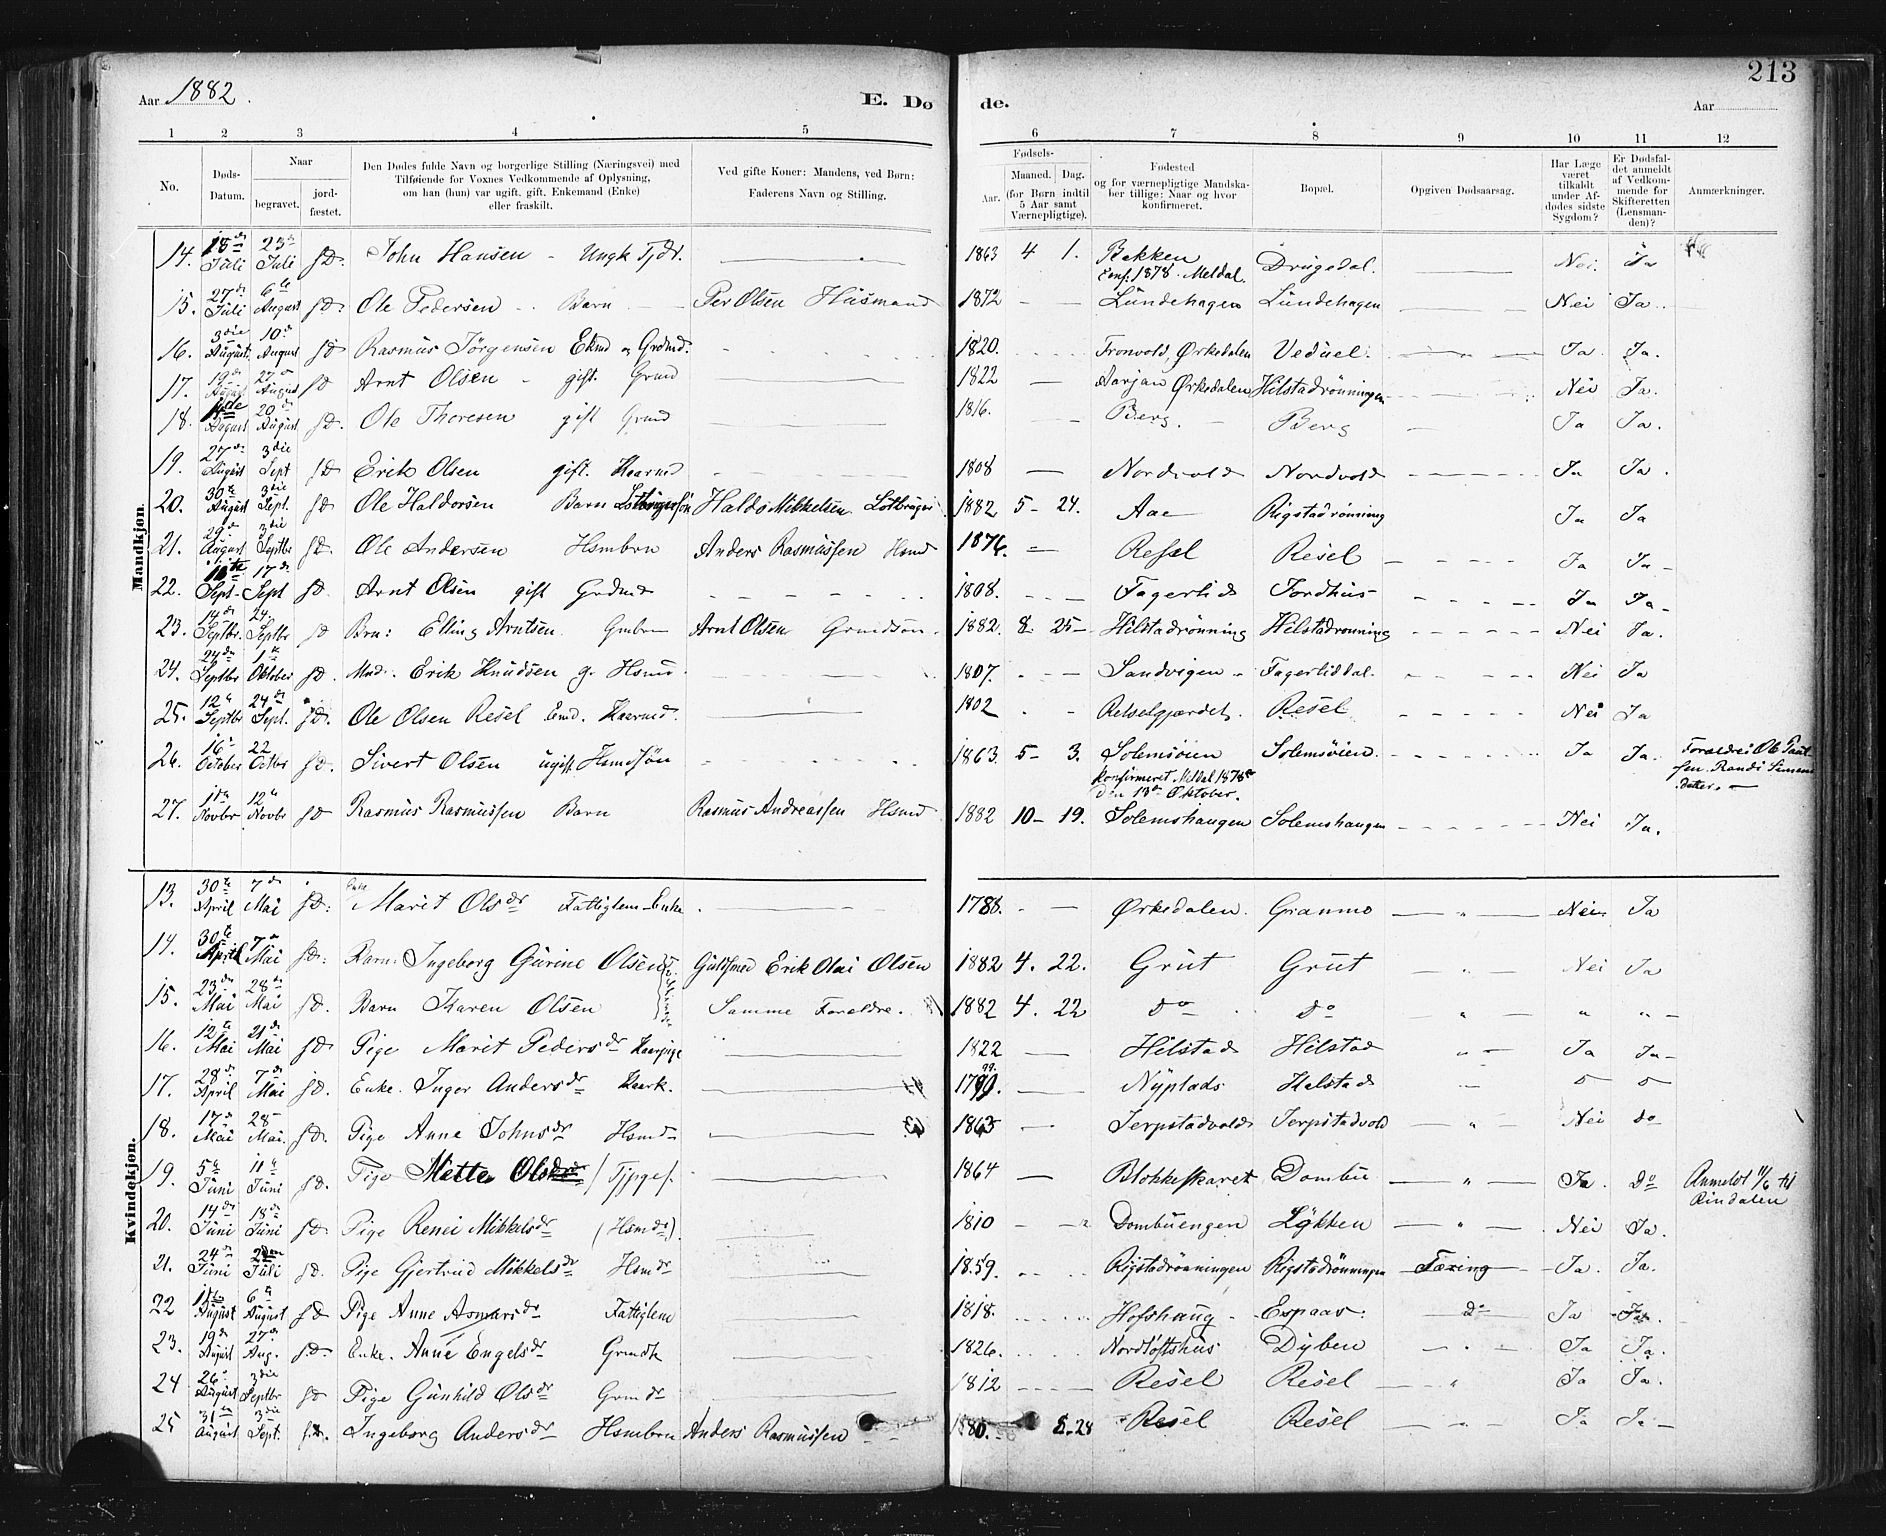 213
Aar 1882.
E. Dø de.
Aar
1 2 3 4 5 6 7 8 9 10 11 12
No.
Døds-Datum.
Naar
begravet.
jord-fæstet.
Den Dødes fulde Navn og borgerlige Stilling (Næringsvei) med
Tilføiende for Voxnes Vedkommende af Oplysning,
om han (hun) var ugift, gift, Enkemand (Enke)
eller fraskilt.
Ved gifte Koner: Mandens, ved Børn:
Faderens Navn og Stilling.
Fødsels-
Aar. Maaned. Dag.
(for Børn indtil
5 Aar samt
Værnepligtige).
Fødested
og for værnepligtige Mandska-
ber tillige: Naar og hvor
konfirmeret.
Bopæl.
Opgiven Dødsaarsag.
Har Læge
været
tilkaldt
under Af-
dødes sidste
Sygdom?
Er Dødsfal-
det anmeldt
af Vedkom-
mende for
Skifteretten
(Lensman-
den)?
Anmærkninger.
Mandkjøn.
14. 18de Juli 23de Juli s.D. John Hansen - Ungk. Tjdr. 1863 4 1. Bakken Drugedal. Nei. Ja
Conf. 1878. Meldal.
15. 27de Juli 6te August s.D. Ole Pedersen - Barn Per Olsen Husmand 1872 - - Lundehagen Lundehagen Nei Ja.
16. 3die August. 10de August s.D. Rasmus Jørgensen Ekmd og Grdmd. 1820. Tronvold, Ørkedalen Veduel. Ja. Ja.
17. 19de August 27de August s.D. Arnt Olsen - gift. Grmd 1822 - Aarjan Ørkedalen Hilstadrönningen Nei Ja.
18. 14de August 20de August s.D. Ole Thoresen gift Grmd 1816. Berg. Berg Ja Ja.
19. 27de August 3die Sept s.D. Erik Olsen gift. Kaarmd 1808 - Nordvold Nordvold Ja Ja.
20. 30te August 3die Sept. s.D. Ole Haldorsen Barn Haldo Mikkelsen Lotbruger 1882 5 - 24. Aae Rigstadrönning Ja Ja
21. 29de August 3die Septbr s.D. Ole Andersen Hsmbrn Anders Rasmussen Hsmd 1876. - Resel Resel Ja Ja -
22. Sept. 17de Sept s.D. Arnt Olsen gift Grdmd 1808. Fagerlid Jordhus Ja Ja -
23. 14de Septbr. 24. Septbr s.D. Brn: Elling Arntsen Gmbrn Arnt Olsen Grmdsön 1882. 8. 25 - Hilstadrönning Hilstadrönning Nei Ja.
24. 24de Septbr 1te Oktober s.D. Md. Erik Knudsen g. Hsmd. 1807. Sandvigen Fagerliddal. Nei Ja
25. 12te Septbr 24de Sept. s.D. Ole Olsen Resel Emd. Kaarmd. 1802 Retselgjærdet. Resel Nei Ja
26. 16de October 22 Octbr s.D. Sivert Olsen ugift Hsmdsön 1863. 5 - 3. Solemsöien Solemsöien. Ja Ja.
konfirmeret Meldal 1878
den 13de Oktober.
Foraldre: Ole Paulsen. Randi Simensdatter.
27. 11te Novbr 12te Novbr s.D. Rasmus Rasmussen Barn Rasmus Andreassen Hsmd 1882 10 - 19. Solemshaugen Solemshaugen Nei Ja.
Kvindekjøn.
13. 30te April 7de Mai s.D: Marit Olsdr Fattiglem - Enke 1788. Ørkedalen. Granmo Nei Ja
14. 30te April 7de Mai s.D: Barn: Ingeborg Gurine Olsen Guldsmed Erik Olai Olsen 1882 4. 22. Grut Grut Nei Ja
15. 23de Mai 28de Mai s.D. Barn Karen Olsen Samme Foraldre. 1882 4. 22 Do Do " " -
16. 12te Mai 21de Mai s.D. Pige Marit Pedersdr Kaarpige 1822 Hilstad Hilstad Ja Ja -
17. 28de April 7de Mai s.D. Enke. Inger Andersdr Kaark. 1799. Nyplads Halstad
18. 17de Mai 28de Mai. s.D. Pige Anne Johnsdr Hsmd - 1865 Jerpstadvold Jerpstadvold Nei do
19. 5te Juni 11te Juni s.D. Pige Mette Olsdr Tjpge. 1864 - Blokkeskaret Dombu Ja. Do Anmeldt 11/6 til Rindalen
20. 14de Juni 18de Juni s.D. Pige Renei Mikkelsdr (Hsmdr). 1810 Dombuengen Løkken Nei Ja.
21. 24de Juni 2den Juli s.D. Pige Gjertrud Mikkelsdr Hsmdr 1859. Rigstadrönningen Rigstadrönningen Tæring Ja. Ja.
22 August 6te August s.D. Pige Anne Asmarsdr Fattiglem 1818. Hofshaug Espaas. Do Ja Ja.
23. 19de August 27de Aug. s.D. Enke. Anne Engelsdr Grmdk 1826. Nordløftshus Dyben Ja Ja.
24 26de August 3die Septbr s.D. Pige Gunhild Olsdr Grmdr 1812 Resel Resel Ja Ja.
25 31te August 3die Sept. s.D. Ingeborg Andersdr Hsmbrn Anders Rasmussen 1880. 5 - 28 Resel Resel Ja Ja -